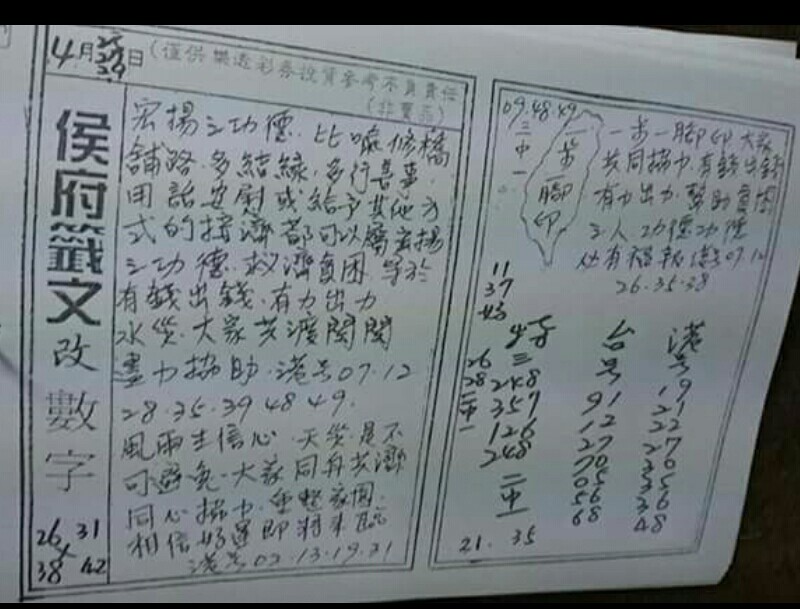 4月 日(僅供樂透彩券投資參考不負責任
(非賣品)
侯府籤文改數字
26 31
38 42
宏揚之功德、比喻修橋
舖路、多結緣、多行善事、
用話安慰或給予其他方
式的接濟都可以屬宏揚
之功德、救濟貧困 等於
有錢出錢、有力出力
水災、大家共渡關關
盡力協助、港号07.12
28.35.39 48 49.
風雨生信心、天災是不
可避免、大家同舟共濟
同心協力、重整家園、
相信好運即將來臨
港号02.13.19.21
09.48.49
三中一
一步一腳印
一步一腳印 大家
共同協力、有錢出錢
有力出力、幫助貧困
之人 功德功德
必有福報 港号07.12
26.35.38
11
37
26
28
二中一
三
248
357
126
248
二中一
21. 35
台号
91
12
27
70
05
56
68
港号
19
21
22
27
48